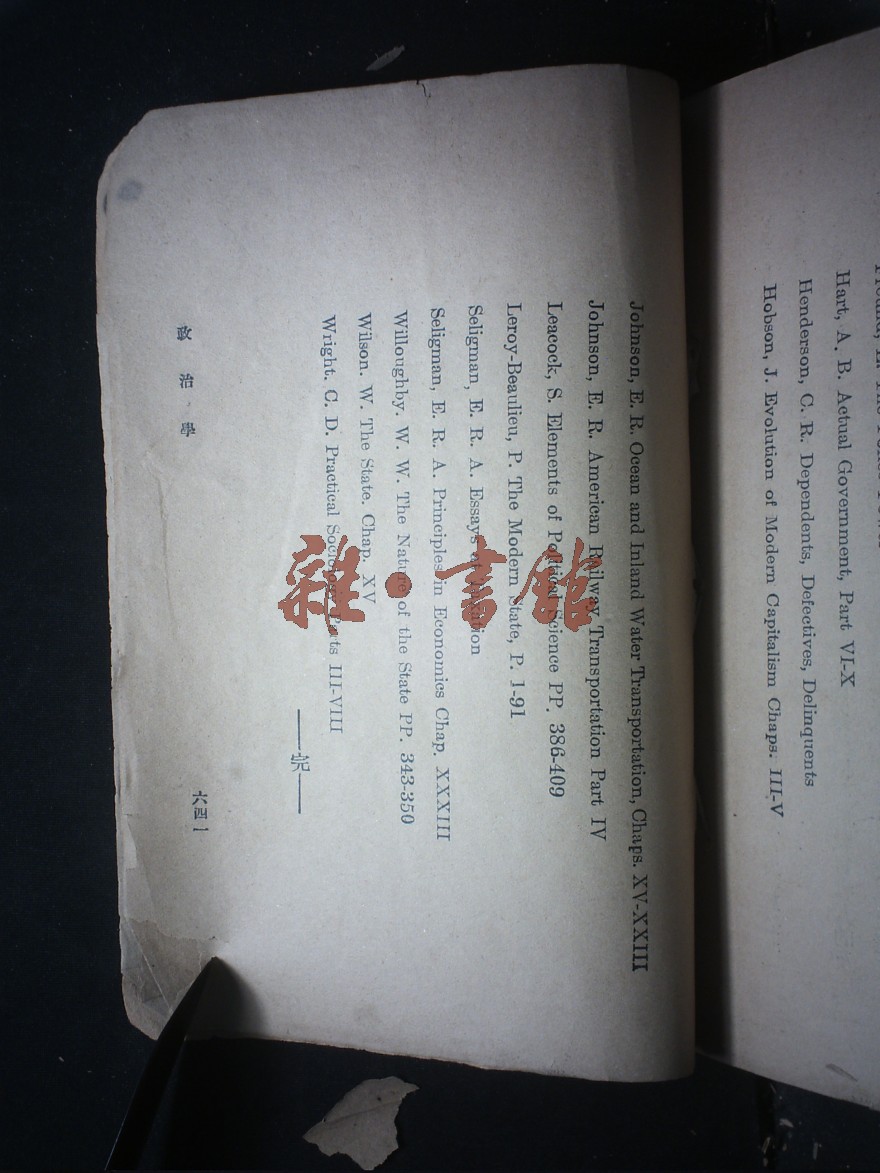 Hart, A. B. Actual Government, Part VI-X
Henderson, C. R. Dependents, Defectives, Delinquents
Hobson, J. Evolution of Modern Capitalism Chaps. III-V
Johnson, E. R. Ocean and Inland Water Transportation, Chaps. XV-XXIII
Johnson, E. R. American Railway Transportation Part IV
Leacock, S. Elements of Political Science PP. 386-409
Leroy-Beaulieu, P. The Modern State, P. 1-91
Seligman, E. R. A. Essays in Taxation
Seligman, E. R. A. Principles in Economics Chap. XXXIII
Willoughby. W. W. The Nature of the State PP. 343-350
Wilson. W. The State. Chap. XV
Wright. C. D. Practical Sociology Parts III-VIII
——完——
六四一
雜·書館